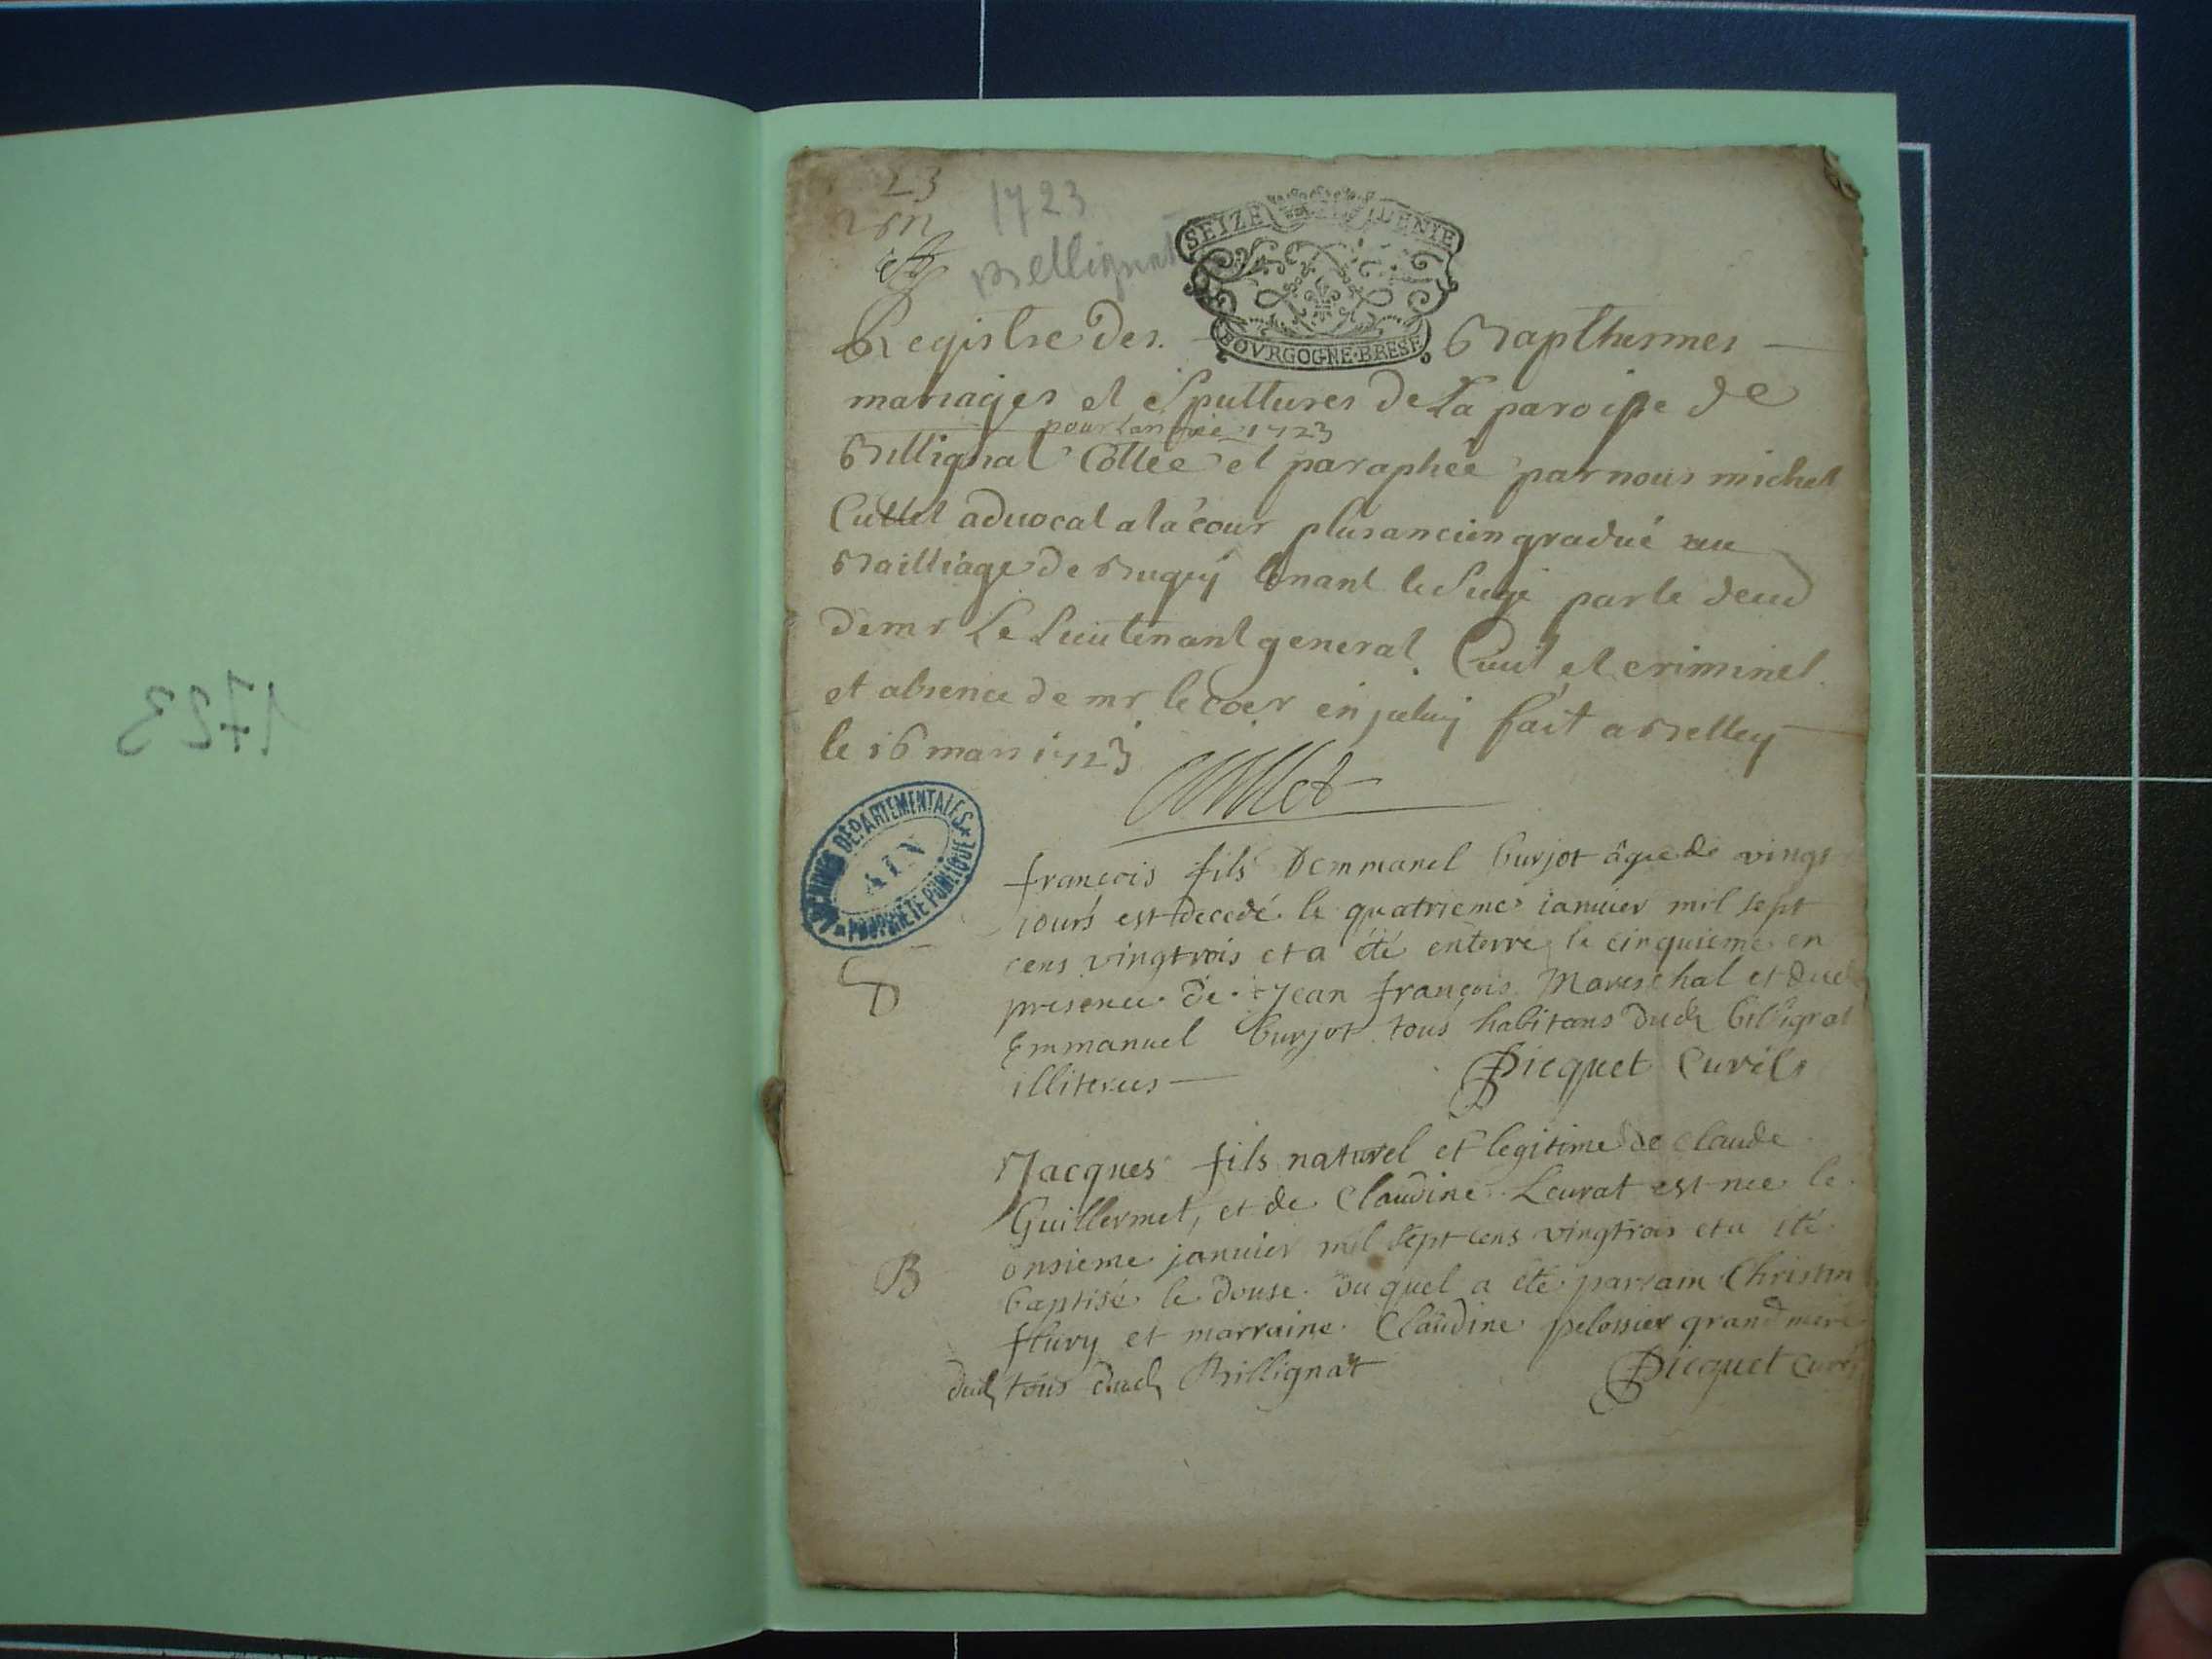 1723
23
1723
Bellignat
SEIZE DENIE
BOVRGOGNE·BRESE
Registre des Bapthesmes
mariages et Spultures de La paroisse de
pour Lannée 1723
Billignat Cottée et paraphée par nous michel
Cullet aduocat a la cour plus ancien gradué au
Bailliage de Bugey tenant le Siege par le deced
de mr Le Lieutenant general Ciuil et criminel
et absence de mr le coer en jceluy fait a Belley
le 16 mars 1723
Cullet
ARCHIVES DÉPARTEMENTALES
AIN
PROPRIÉTÉ PUBLIQUE
françois fils Demmanel burjot âgé de vingt
jours est decedé le quatrieme ianuier mil sept
cens vingtrois et a été enterré le cinquieme en
presence de Jean françois Mareschal et dud
Emmanuel burjot tous habitans dud billignat
illiterés
Picquet Curé
Jacques fils naturel et legitime de claude
Guillermet, et de Claudine Leurat est née le
onsieme januier mil sept cens vingtrois et a été
B
baptisé le douse duquel a été parrain Christin
flury et marraine Claudine pelossier grand mere
dud tous dud Billignat
Picquet curé